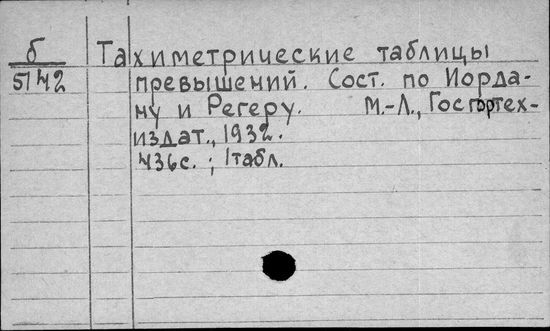 б Тахиметрические таблицы
5142 превышений. Сост. по Иорда-
ну и Регеру. М.-Л., Госгортех-
издат., 1932.
436с. ; 1табл.